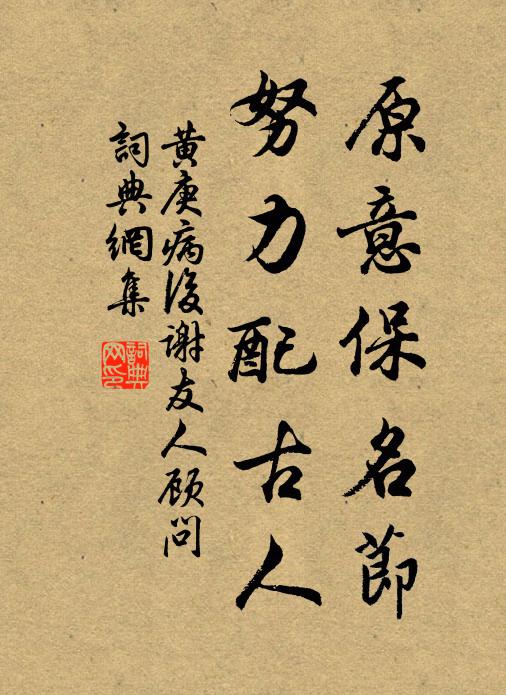 原意保名節
努力配古人
黄庚病後謝友人顧問
詞典網集
詞典
网印